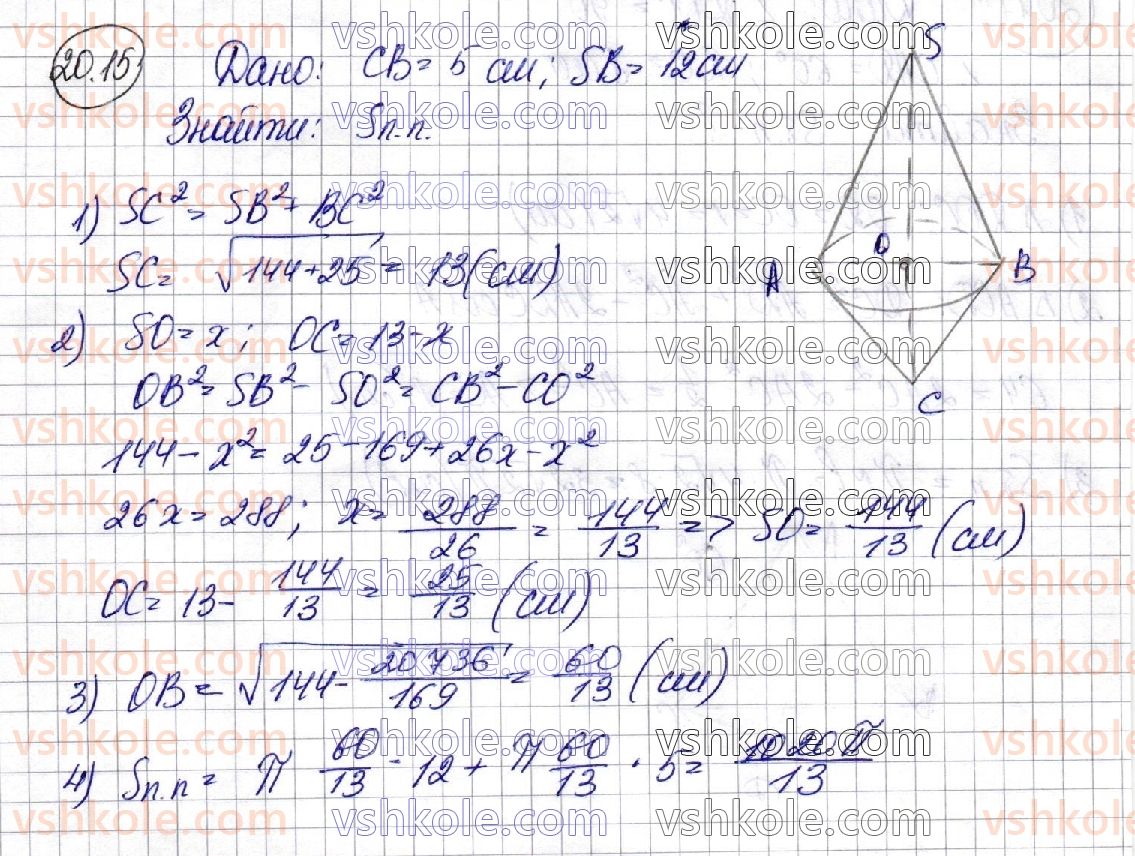 20.15
Дано: CB = 5 см; SB = 12 см
Знайти: Sп.п.
1) SC² = SB² + BC²
SC = √144+25 = 13 (см)
2) SO = x; OC = 13-x
OB² = SB² - SO² = CB² - CO²
144 - x² = 25 - 169 + 26x - x²
26x = 288; x = 288/26 = 144/13 => SO = 144/13 (см)
OC = 13 - 144/13 = 25/13 (см)
3) OB = √144 - 20736/169 = 60/13 (см)
4) Sп.п = π 60/13 · 12 + π 60/13 · 5 = 1020π/13
S
O
A
B
C
vshkole.com